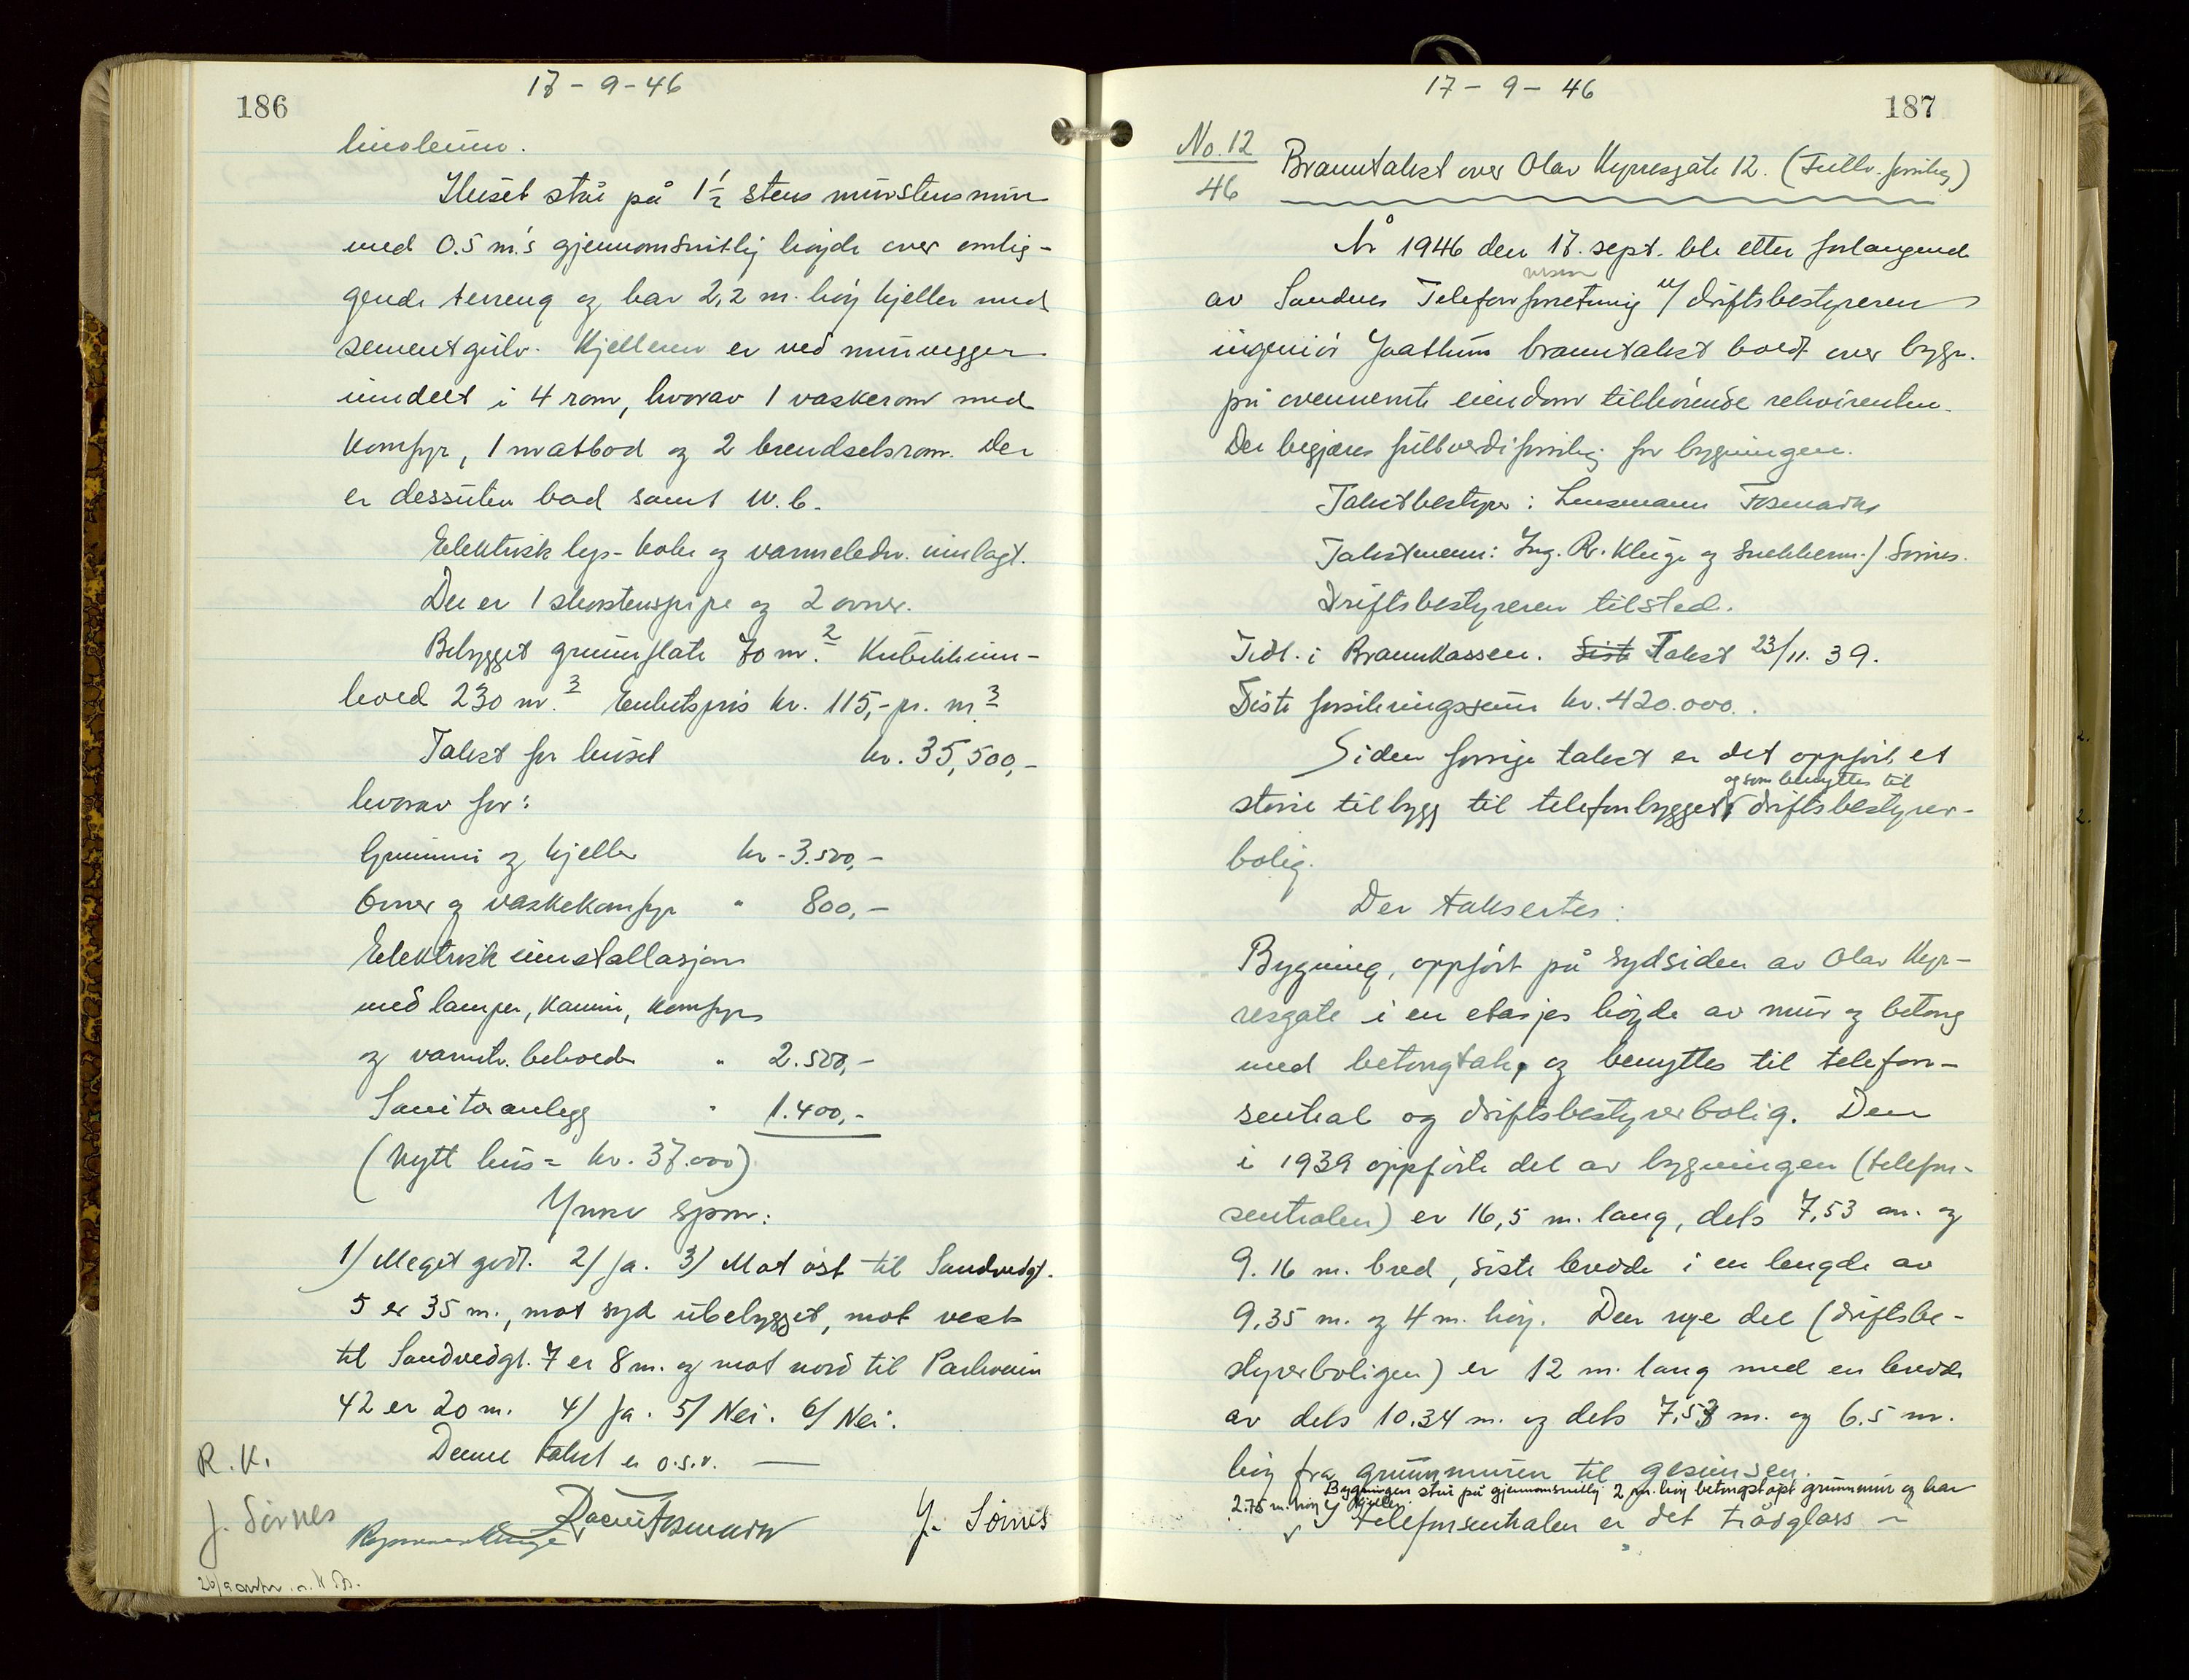 186
17-9-46
linoleum.
Huset står på 1½ stens murstensmur
med 0.5 m's gjennomsnitlig høyde over omlig-
gende terreng og har 2,2 m. høy kjeller med
sementgulv. Kjelleren er ved murvegger
inndelt i 4 rom, hvorav 1 vaskerom med
komfyr, 1 matbod og 2 brendselsrom. Der
er dessuten bad samt W.C.
Elektrisk lys- koke og varmeledn. innlagt.
Der er 1 skorstenspipe og 2 ovner.
Bebygget grunnflate 70 m.² Kubikkinn-
hold 230 m.³ Enhetspris kr. 115,- pr. m³
Takst for huset kr. 35,500,-
hvorav for:
Grunnmur og kjeller kr. 3.500,-
Ovner og vaskekomfyr " 800,-
Elektrisk innstallasjon
med lamper, kamin, komfyr
og varmtv. beholder " 2.500,-
Sanitæranlegg " 1.400,-
(Nytt hus = kr. 37.000)
Ymse spm:
1/ Meget godt. 2/ Ja. 3/ Mot øst til Sandvedgt.
5 er 35 m., mot syd ubebygget, mot vest
til Sandvedgt. 7 er 8 m. og mot nord til Parkveien
42 er 20 m. 4/ Ja. 5/ Nei. 6/ Nei.
Denne takst er o.s.v. —
R. K.
J. Sörnes
J. Sörnes
187
17-9-46
No. 12
46
Branntakst over Olav Kyrresgate 12. (Fullv. forsikr.)
År 1946 den 17. sept. ble etter forlangende
av Sandnes Telefonforretning v/ driftsbestyreren
ingeniör Jaathun branntakst holdt over bygn.
på ovennemte eiendom tilhörende rekvirenten.
Der begjæres fullverdiforsikr. for bygningen.
Takstbestyrer: Lensmann Tosmark
Takstmenn: Ing. R. Kluge og Snekkerm. J Sörnes.
Driftsbestyreren tilsted.
Tidl. i Brannkassen. Siste Takst 23/11. 39.
Siste forsikringssum kr. 420.000.
Siden forrige takst er det oppfört et
og som benyttes til
större tilbygg til telefonbygget driftsbestyrer-
bolig.
Der takseres:
Bygning, oppfört på sydsiden av Olav Kyr-
resgate i en etasjes høyde av mur og betong
med betongtak, og benyttes til telefon-
sentral og driftsbestyrerbolig. Den
i 1939 oppförte del av bygningen (telefon-
sentralen) er 16,5 m. lang, dels 7,53 m. og
9.16 m. bred, siste bredde i en lengde av
9.35 m. og 4 m. høy. Den nye del (driftsbe-
styrerboligen) er 12 m. lang med en bredde
av dels 10.34 m. og dels 7.53 m. og 6.5 m.
høy fra grunnmuren til gesimsen.
Bygningen står på gjennomsnitlig 2 m. høy betongstøpt grunnmur og har
2.75 m. høy kjeller.
I telefonsentralen er det trådglass -